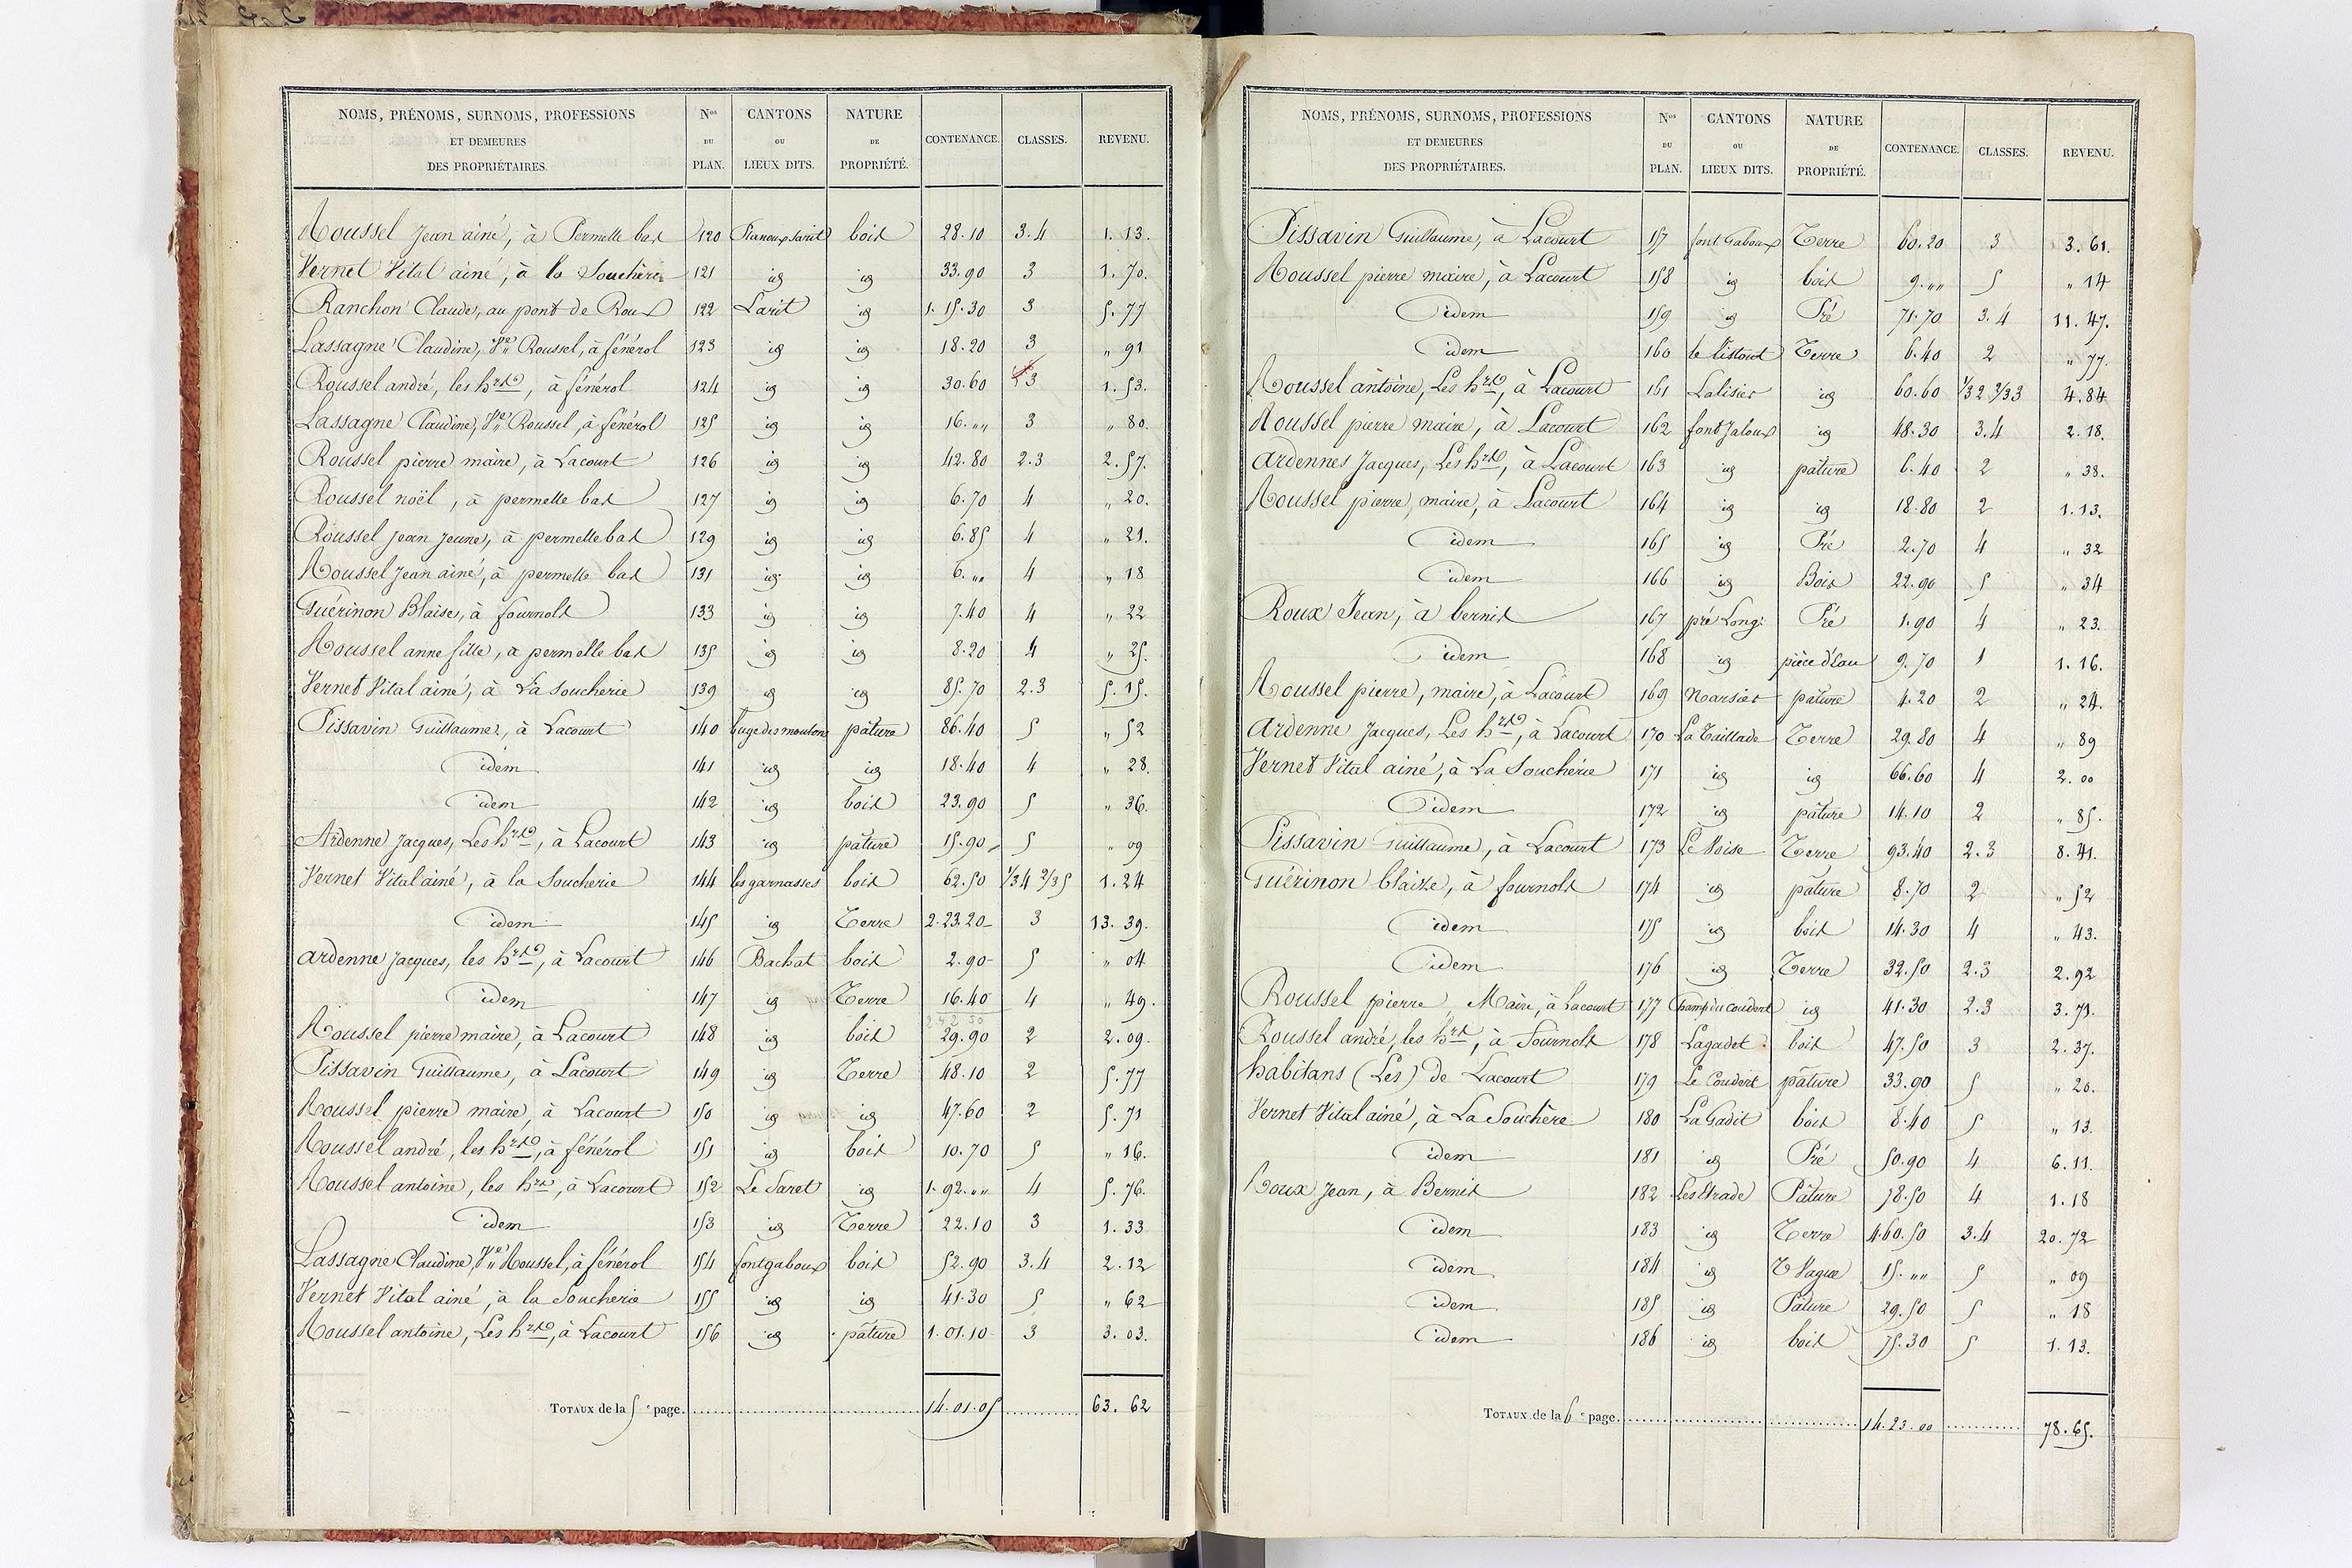 NOMS, PRÉNOMS, SURNOMS, PROFESSIONS ET DEMEURES DES PROPRIÉTAIRES. Nos DU PLAN. CANTONS OU LIEUX DITS. NATURE DE PROPRIÉTÉ. CONTENANCE. CLASSES. REVENU.
Roussel Jean ainé, à Permelle bas 120 bois 28.10 3.4 1.13.
Vernet Vital ainé, à la Souchère 121 id id 33.90 3 1.70.
Ranchon Claude, au pont de Roux 122 Larit id 1.15.30 3 5.77
Lassagne Claudine, Ve Roussel, à fénérol 123 id id 18.20 3 " 91
Roussel andré, les hrs, à fénérol 124 id id 30.60 3 1.53.
Lassagne Claudine, Ve Roussel, à fénérol 125 id id 16. " 3 " 80.
Roussel pierre maire, à Lacourt 126 id id 42.80 2.3 2.57.
Roussel noël, à permelle bas 127 id id 6.70 4 " 20.
Roussel jean jeune, à permelle bas 129 id id 6.85 4 " 21.
Roussel Jean ainé, à permelle bas 131 id id 6. " 4 " 18
Guérinon Blaise, à fournols 133 id id 7.40 4 " 22
Roussel anne fille, à permelle bas 135 id id 8.20 4 " 25.
Vernet Vital ainé, à La Soucherie 139 id id 85.70 2.3 5.15.
Pissavin Guillaume, à Lacourt 140 suge des moutons pâture 86.40 5 " 52
idem 141 id id 18.40 4 " 28.
idem 142 id bois 23.90 5 " 36.
Ardenne Jacques, Les hrs, à Lacourt 143 id pâture 15.90 5 " 09
Vernet Vital ainé, à la Soucherie 144 les garnasses bois 62.50 1/3 4 2/3 5 1.24
idem 145 id Terre 2.23.20 3 13.39.
ardenne Jacques, les hrs, à Lacourt 146 Bachat bois 2.90 5 " 04
idem 147 id Terre 16.40 4 " 49.
Roussel pierre maire, à Lacourt 148 id bois 29.90 2 2.09.
Pissavin Guillaume, à Lacourt 149 id Terre 48.10 2 5.77
Roussel pierre maire, à Lacourt 150 id id 47.60 2 5.71
Roussel andré, les hrs, à fénérol 151 id bois 10.70 5 " 16.
Roussel antoine, les hrs, à Lacourt 152 Le Saret id 1.92. " 4 5.76.
idem 153 id Terre 22.10 3 1.33
Lassagne Claudine, Ve Roussel, à fénérol 154 fontgaboux bois 52.90 3.4 2.12
Vernet Vital ainé, à la Soucherie 155 id id 41.30 5 " 62
Roussel antoine, Les hrs, à Lacourt 156 id pâture 1.01.10 3 3.03.
TOTAUX de la 5e page. 14.01.05 63.62
NOMS, PRÉNOMS, SURNOMS, PROFESSIONS ET DEMEURES DES PROPRIÉTAIRES. Nos DU PLAN. CANTONS OU LIEUX DITS. NATURE DE PROPRIÉTÉ. CONTENANCE. CLASSES. REVENU.
Pissavin Guillaume, à Lacourt 157 font Gaboux Terre 60.20 3 3.61.
Roussel pierre maire, à Lacourt 158 id bois 9. " 5 " 14
idem 159 id Pré 71.70 3.4 11.47.
idem 160 Terre 6.40 2 " 77.
Roussel antoine, Les hrs, à Lacourt 161 Lalisier id 60.60 1/3 2 2/3 3 4.84
Roussel pierre maire, à Lacourt 162 font Jaloux id 48.30 3.4 2.18.
Ardennes Jacques, Les hrs, à Lacourt 163 id pature 6.40 2 " 38.
Roussel pierre, maire, à Lacourt 164 id id 18.80 2 1.13.
idem 165 id Pré 2.70 4 " 32
idem 166 id Bois 22.90 5 " 34
Roux Jean, à bernis 167 pré Long Pré 1.90 4 " 23.
idem 168 id pièce d'Eau 9.70 1 1.16.
Roussel pierre, maire, à Lacourt 169 Narsier pature 4.20 2 " 24.
Ardenne Jacques, Les hrs, à Lacourt 170 La Taillade Terre 29.80 4 " 89
Vernet Vital ainé, à La Souchérie 171 id id 66.60 4 2.00
idem 172 id pâture 14.10 2 " 85.
Pissavin Guillaume, à Lacourt 173 Le Voise Terre 93.40 2.3 8.41.
Guérinon blaize, à fournols 174 id pâture 8.70 2 " 52
idem 175 id bois 14.30 4 " 43.
idem 176 id Terre 32.50 2.3 2.92
Roussel pierre Maire, à Lacourt 177 Champ du coudert id 41.30 2.3 3.71.
Roussel andré, les hrs, à Fournols 178 Lagadet bois 47.50 3 2.37.
habitans (Les) de Lacourt 179 Le Coudert pâture 33.90 5 " 20.
Vernet Vital ainé, à La Souchère 180 La Gadit bois 8.40 5 " 13.
idem 181 id Pré 50.90 4 6.11.
Roux Jean, à Bernis 182 Les Etrade Pâture 78.50 4 1.18
idem 183 id Terre 4.60.50 3.4 20.72
idem 184 id T Vague 15. " 5 " 09
idem 185 id Pature 29.50 5 " 18
idem 186 id bois 75.30 5 1.13.
TOTAUX de la 6e page. 14.23.00 78.65.